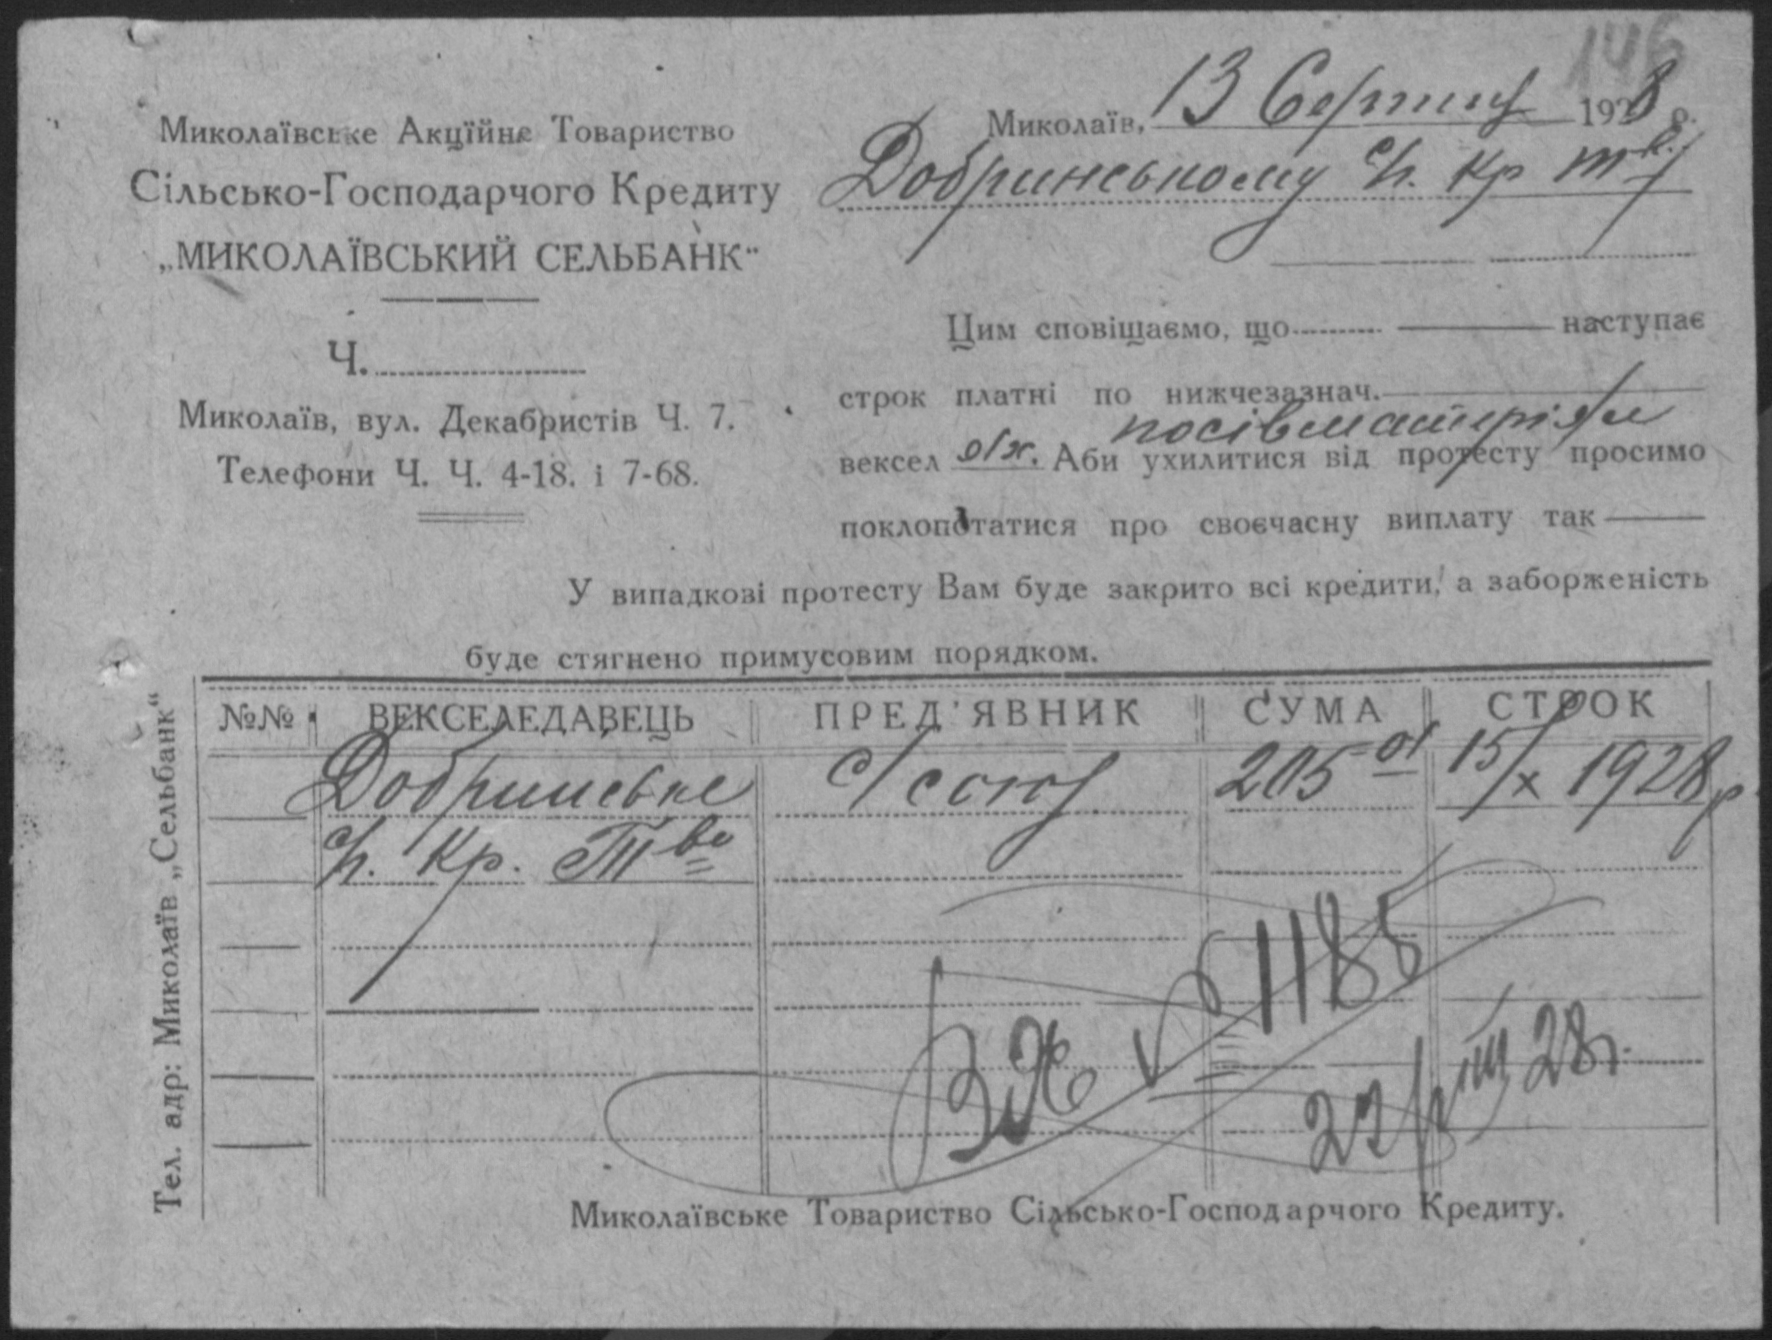 146
Миколаївське Акційне Товариство
Сільсько-Господарчого Кредиту
„МИКОЛАЇВСЬКИЙ СЕЛЬБАНК“
Ч.
Миколаїв, вул. Декабристів Ч. 7.
Телефони Ч. Ч. 4-18. і 7-68.
Миколаїв, 13 Серпня 1928 р.
Добринському С/г. Кр Т-ву
Цим сповіщаємо, що наступає
строк платні по нижчезазнач.
посівматеріял
вексел Аби ухилитися від протесту просимо
поклопотатися про своєчасну виплату так
У випадкові протесту Вам буде закрито всі кредити, а заборженість
буде стягнено примусовим порядком.
№№ ВЕКСЕЛЕДАВЕЦЬ ПРЕД'ЯВНИК СУМА СТРОК
Добринське С/союз 205 01 15/X 1928 р
С/г. Кр. Т-во
1185
22/VIII 28 г.
Миколаївське Товариство Сільсько-Господарчого Кредиту.
Тел. адр: Миколаїв „Сельбанк“